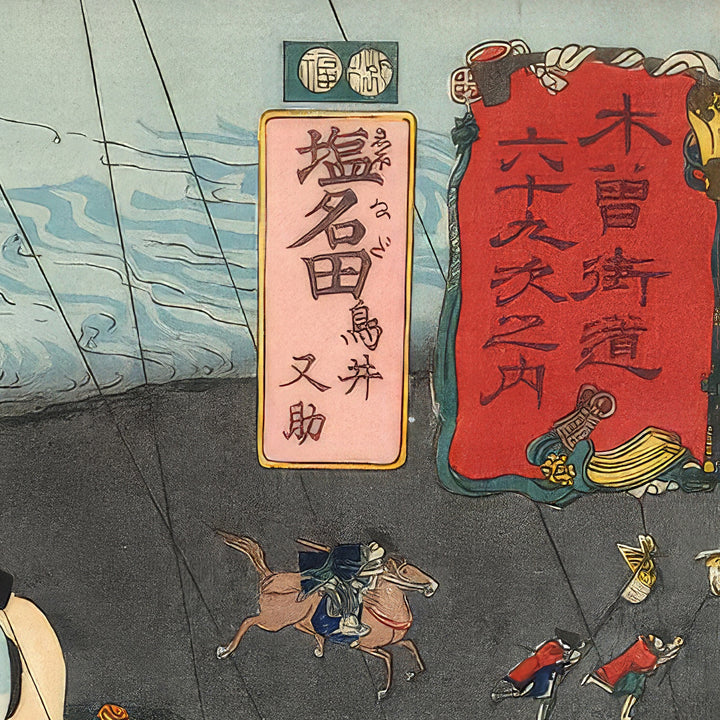 木曽街道
六十九次之内
福
しほなだ
塩名田
鳥井
又助